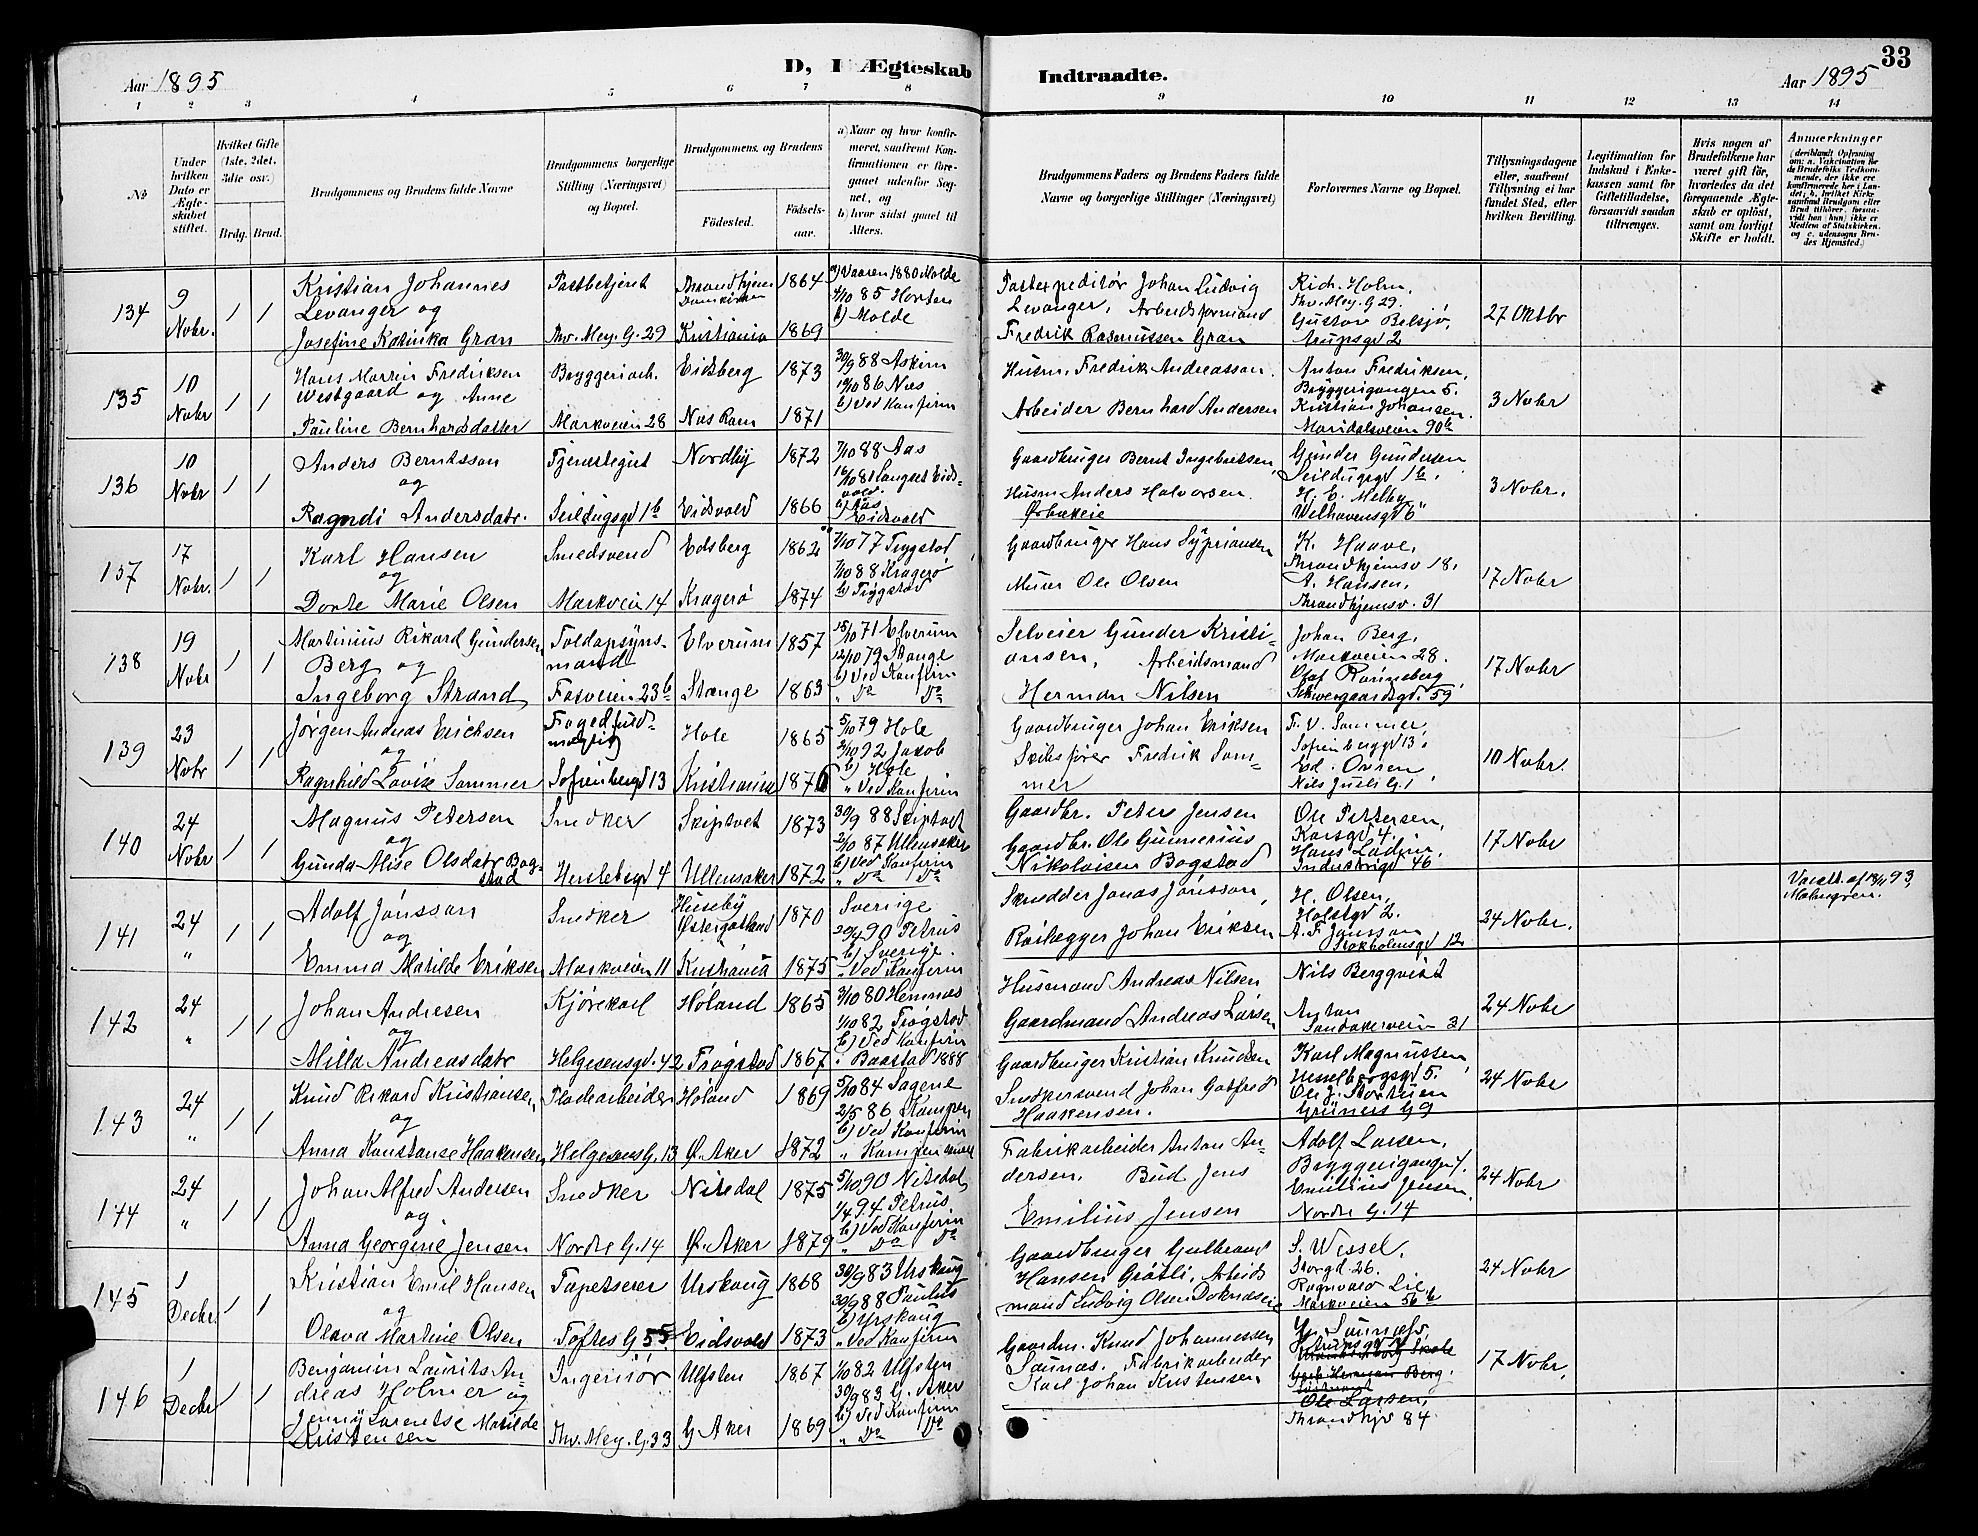 Aar 1895
D, I Ægteskab Indtraadte.
33
Aar 1895
1 2 3 4 5 6 7 8 9 10 11 12 13 14
No
Under hvilken Dato er Ægteskabet stiftet.
Hvilket Gifte (1ste, 2det, 3die osv.)
Brdg. Brud.
Brudgommens og Brudens fulde Navne
Brudgommens borgerlige Stilling (Næringsvei) og Bopæl.
Brudgommens, og Brudens
Fødested. Fødselsaar.
a) Naar og hvor konfirmeret, saafremt Konfirmationen er foregaaet udenfor Sognet, og
b) hvor sidst gaaet til Alters.
Brudgommens Faders og Brudens Faders fulde Navne og borgerlige Stillinger (Næringsvei)
Forlovernes Navne og Bopæl.
Tillysningsdagene eller, saafremt Tillysning ei har fundet Sted, efter hvilken Bevilling.
Legitimation for Indskud i Enkekassen samt for Giftetilladelse, forsaavidt saadan tiltrænges.
Hvis nogen af Brudefolkene har været gift før, hvorledes da det foregaaende Ægteskab er opløst, samt om lovligt Skifte er holdt.
Anmærkninger
(deriblandt Oplysning om: a. Vakcination for de Brudefolks Vedkommende, der ikke ere konfirmerede her i Landet; b. hvilket Kirkesamfund Brudgom eller Brud tilhører, forsaavidt han (hun) ikke er Medlem af Statskirken, og c. udensogns Brudes Hjemsted.)
134 9 Novbr. 1 1 Kristian Johannes Levanger og Postbetjent Throndhjem Domkirken 1864 a) Vaaren 1880 Molde
Josefine Katinka Gran Thv. Mey. G. 29 Kristiania 1869 85 Horten b) Molde
Postexpeditør Johan Ludvig Levanger, Arbeidsformand Fredrik Rasmussen Gran
Rich. Holm, Thv. Mey. G 29. Gustav Belsjø, Arupsgd 2
27 Oktbr
135 10 Novbr 1 1 Hans Martin Fredriksen Westgaard og Anne Bryggeriarb. Eidsberg 1873 30/9 88 Askim
Pauline Bernhardsdatter Markveien 28 Næs Rom 1871 10/10 86 Næs b) Ved Konfirm
Husm. Fredrik Andreassen.
Arbeider Bernhard Andersen
Anton Fredriksen, Bryggerigangen 5. Kristian Johansen. Maridalsveien 90b
3 Novbr
136 10 Novbr 1 1 Anders Berntsson og Tjenestegut Nordby 1872 7/10 88 Aas
Ragndi Andersdatr. Seildugsgd 1b Eidsvold 1866 16/10 81 Langset Eidsvold. b) Aas Eidsvold
Gaardbruger Bernt Ingebretsen,
Husm Anders Halvorsen.
Gunder Gundersen Seildugsgd 1b. H. E. Melby Welhavensgd 6
3 Novbr.
137 17 Novbr. 1 1 Karl Hansen og Smedsvend Edsberg 1862 7/10 77 Trygstad
Dorte Marie Olsen Markveien 14 Kragerø 1874 7/10 88 Kragerø b) Trygstad
Gaardbruger Hans Sypriansen
Murer Ole Olsen
K. Haave, Throndhjemsv 18. A. Hansen, Throndhjemsv. 31
17 Novbr
138 19 Novbr 1 1 Martinius Rikard Gundersen Berg og Toldopsynsmand Elverum 1857 15/10 71 Elverum
Ingeborg Strand Fosveien 23b Stange 1863 12/10 79 Stange b) Ved Konfirm " Do Do
Selveier Gunder Kristiansen, Arbeidsmand Herman Nilsen
Johan Berg, Markveien 28. Olaf Rønneberg, Schweigaardsgd. 59
17 Novbr
139 23 Novbr 1 1 Jørgen Andreas Erichsen og Fogedfuldmægtig Hole 1865 5/10 79 Hole
Ragnhild Lovise Sommer Sofienbergd 13 Kristiania 1876 2/10 92 Jakob b) Hole " Ved Konfirm
Gaardbruger Johan Eriksen
Skibsfører Fredrik Sommer
F. V. Sommer, Sofienberggd 13. Ed. Ovren, Nils Juels G. 1
10 Novbr.
140 24 Novbr 1 1 Magnus Petersen og Snedker Skiptvet 1873 30/9 88 Skiptvet
Gunda Alise Olsdatr Bogstad Herslebsgd 4 Ullensaker 1872 2/10 87 Ullensaker b) Ved Konfirm " Do Do
Gaardbr. Peters Jensen
Gaardbr. Ole Gunnerius Nikolaisen Bogstad
Ole Pettersen, Korsgd 4. Hans Ladin, Industrigd 46
17 Novbr
141 24 " 1 1 Adolf Jonsson og Snedker Huseby Østergøtland 1870 Sverige
Emma Matilde Eriksen Markveien 11 Kristiania 1875 20/4 90 Petrus b) Sverige. " Ved Konfirm
Skrædder Jonas Jonsson,
Rørlægger Johan Eriksen
H. Olsen, Holstgd 2. A. F. Jonsson Stokholmsgd 12
24 Novbr.
93, Malmgren.
142 24 " 1 1 Johan Andresen og Kjørekarl Høland 1865 3/10 80 Hemnæs
Milla Andreasdatr Helgesensgd. 42 Trøgstad 1867 1/10 82 Trøgstad b) Ved Konfirm " Baastad 1888
Husmand Andreas Nilsen
Gaardmand Andreas Larsen
Nils Bergqvist Anton Sandakerveien 31
24 Novbr
143 24 " 1 1 Knud Rikard Kristiansen, og Pladearbeider Høland 1869 5/10 84 Sagene
Anna Konstanse Haakensen, Helgesens G. 13 Ø. Aker 1872 2/5 86 Kampen b) Ved Konfirm " Kampen
Gaardbruger Kristian Knudsen
Snedkersvend Johan Gotfred Haakensen.
Karl Magnussen, Hesselbergsgd 5. Ole J. Stortuen Grüners G 9
24 Novbr
144 24 " 1 1 Johan Alfred Andersen og Snedker Nitedal 1875 5/10 90 Nitedal,
Anna Georgine Jensen Nordre G. 14 Ø. Aker 1879 1/4 94 Petrus. b) Ved Konfirm " Do Do
Fabrikarbeider Anton Andersen. Bud Jens Emilius Jensen
Adolf Larsen, Bryggerigangen 7. Emilius Jensen, Nordre G. 14
24 Novbr
145 1 Decbr. 1 1 Kristian Emil Hansen og Tapetserer Urskoug 1868 30/9 83 Urskoug
Olava Martine Olsen Toftes G 55 Eidsvold 1873 30/9 88 Paulus b) Urskoug " Ved Konfirm
Gaardbruger Gulbrand Hansen Grøtli, Arbeidsmand Ludvig Olsen
S. Wessel, Storgd 26. Ragnvald Lie Markveien 56b
24 Novbr
146 1 Decbr 1 1 Benjamin Laurits Andreas Holmer og Ingeniør Ulfsten 1867 1/10 82 Ulfsten
Jenny Lorentse Matilde Kristensen Thv. Mey. G. 33 G Aker 1869 30/9 83 G. Aker b) Ved Konfirm " Do Do
Gaardm. Knud Johannessen Saunæs. Fabrikarbeider Karl Johan Kristensen
Saunæs, Ole Larsen, Throndhjv 84.
17 Novbr,